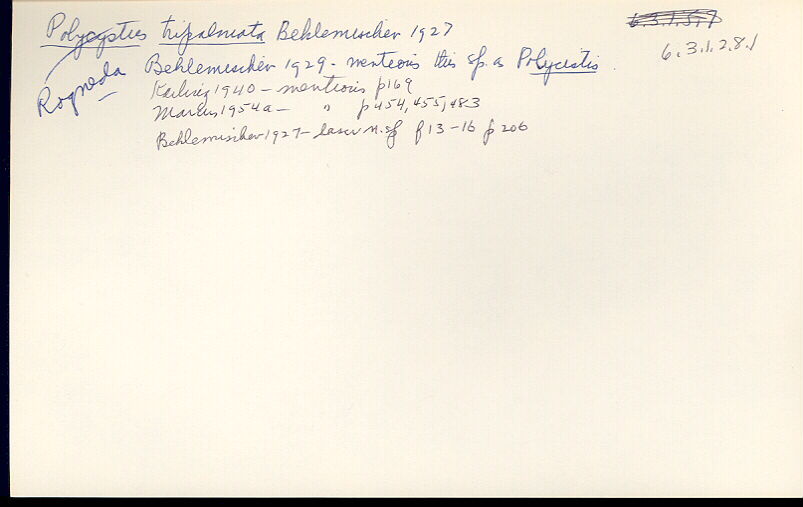 Polycystis tripalmata Beklemischev 1927
6.3.1.5.9
6.3.1.2.8.1
Rogneda
Beklemischev 1929 - mentions this sp. as Polycistis.
Karling 1940 - mentions p169
Marcus 1954a - " p454, 455, 483
Beklemischev 1927 - n.sp f 13-16 p 206